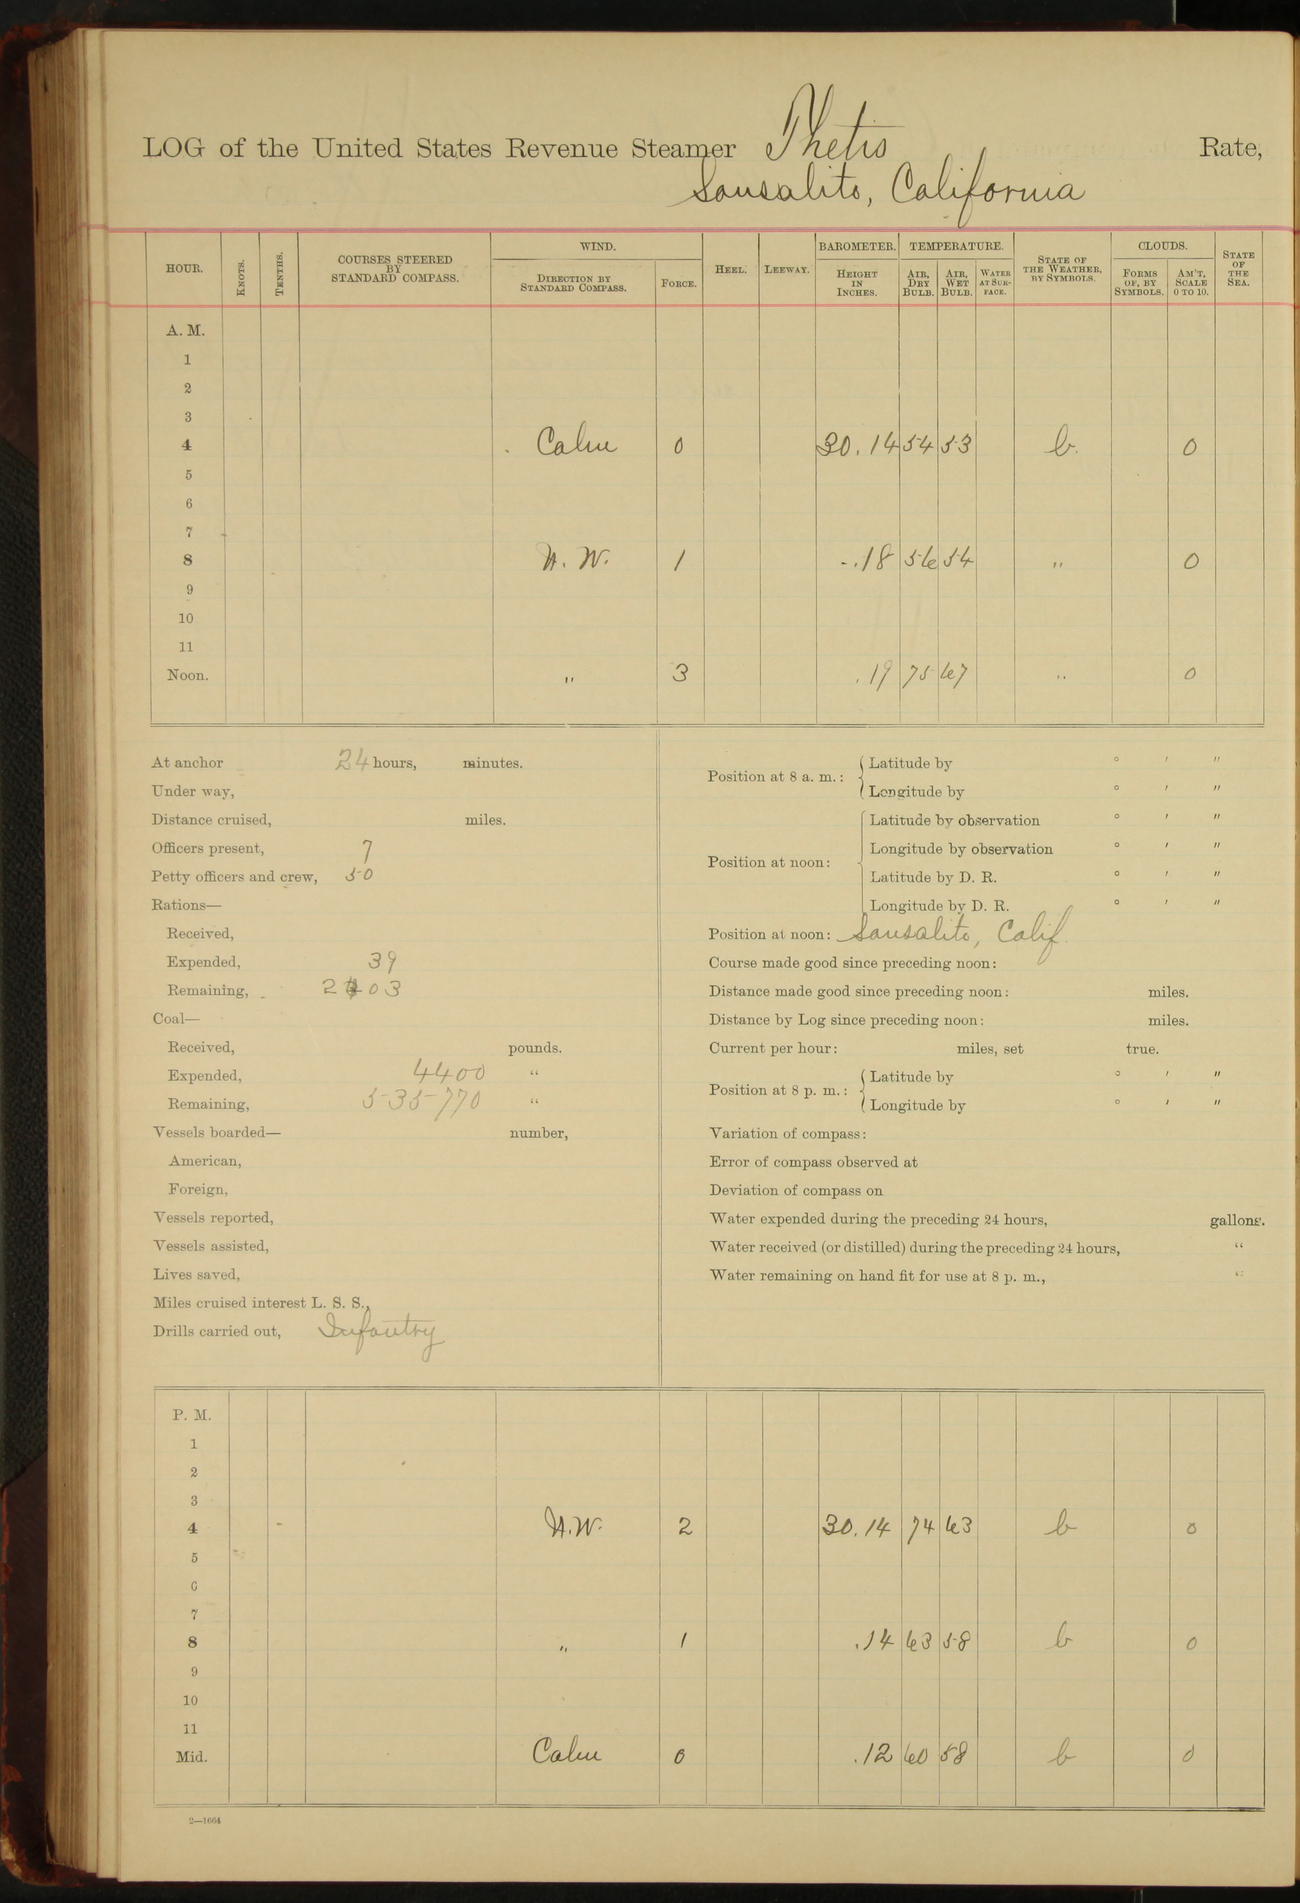 LOG of the United States Revenue Steamer Thetis Rate,
Sausalito, California
HOUR. KNOTS. TENTHS. COURSES STEERED BY STANDARD COMPASS. WIND. DIRECTION BY STANDARD COMPASS. FORCE. HEEL. LEEWAY. BAROMETER. HEIGHT IN INCHES. TEMPERATURE. AIR, DRY BULB. AIR, WET BULB. WATER AT SURFACE. STATE OF THE WEATHER, BY SYMBOLS. CLOUDS. FORMS OF, BY SYMBOLS. AM'T, SCALE 0 TO 10. STATE OF THE SEA.
A. M.
1
2
3
4 Calm 0 30.14 54 53 b. 0
5
6
7
8 N. W. 1 -.18 56 54 " 0
9
10
11
Noon. " 3 .19 75 67 " 0
At anchor 24 hours, minutes.
Under way,
Distance cruised, miles.
Officers present, 7
Petty officers and crew, 50
Rations—
Received,
Expended, 39
Remaining, 2 03
Coal—
Received, pounds.
Expended, 4400 "
Remaining, 535770 "
Vessels boarded— number,
American,
Foreign,
Vessels reported,
Vessels assisted,
Lives saved,
Miles cruised interest L. S. S.,
Drills carried out, Infantry
Position at 8 a. m.: Latitude by ° ' "
Longitude by ° ' "
Position at noon: Latitude by observation ° ' "
Longitude by observation ° ' "
Latitude by D. R. ° ' "
Longitude by D. R. ° ' "
Position at noon: Sausalito, Calif.
Course made good since preceding noon:
Distance made good since preceding noon: miles.
Distance by Log since preceding noon: miles.
Current per hour: miles, set true.
Position at 8 p. m.: Latitude by ° ' "
Longitude by ° ' "
Variation of compass:
Error of compass observed at
Deviation of compass on
Water expended during the preceding 24 hours, gallons.
Water received (or distilled) during the preceding 24 hours, "
Water remaining on hand fit for use at 8 p. m., "
P. M.
1
2
3
4 N.W. 2 30.14 74 63 b 0
5
6
7
8 " 1 .14 63 58 b 0
9
10
11
Mid. Calm 0 .12 60 58 b 0
2—1664